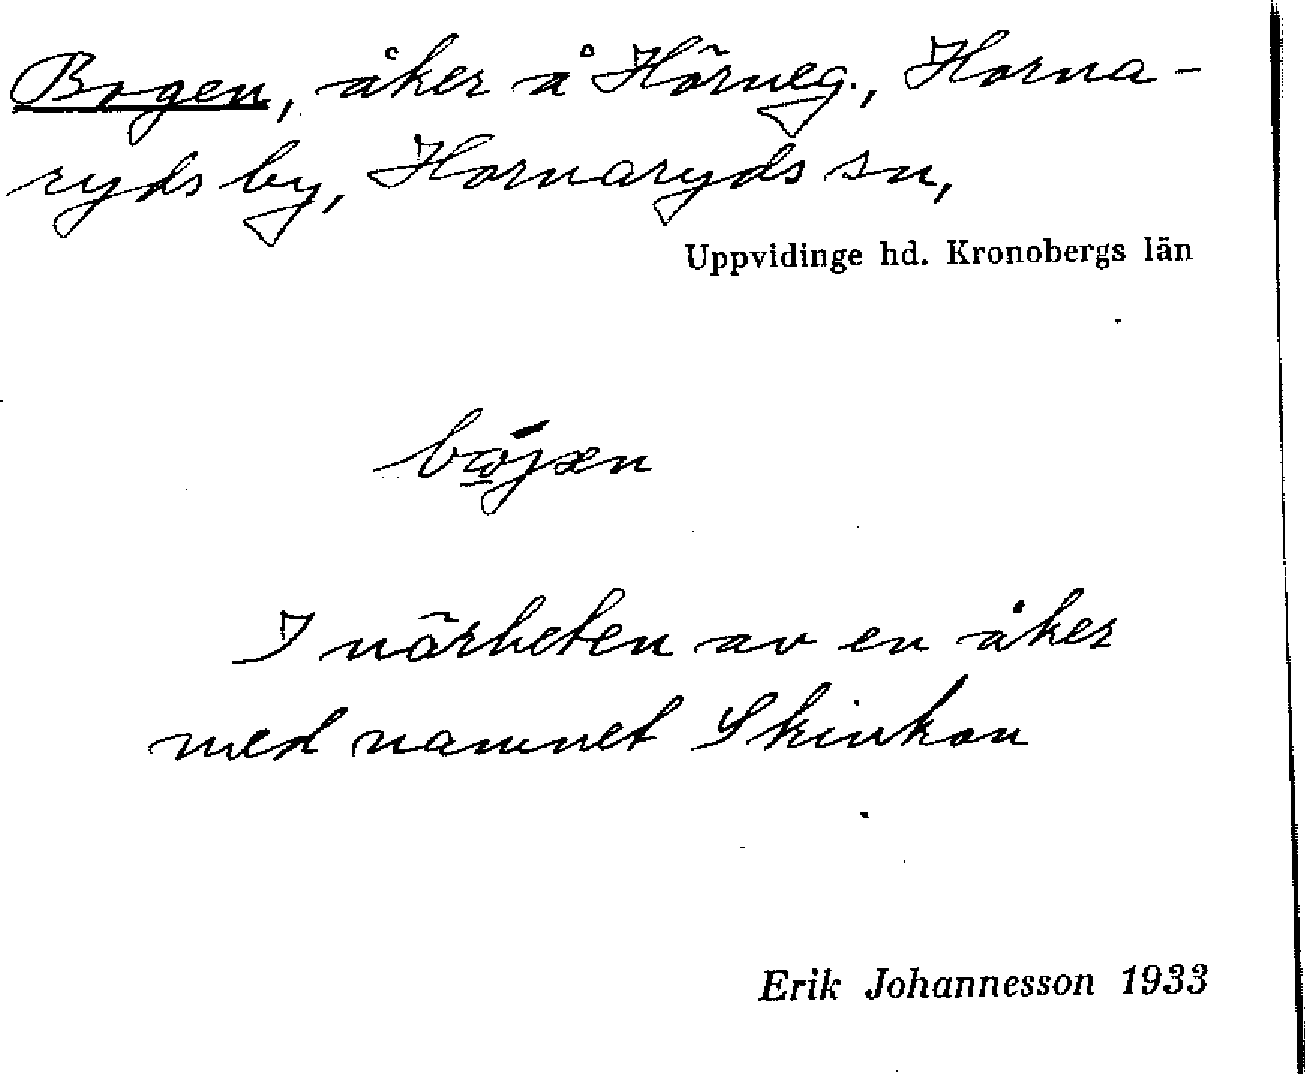 Bogen, åker å Hörneg., Horna-
ryds by, Hornaryds sn,
Uppvidinge hd. Kronobergs län
I närheten av en åker
med namnet Skinkon
Erik Johannesson 1933